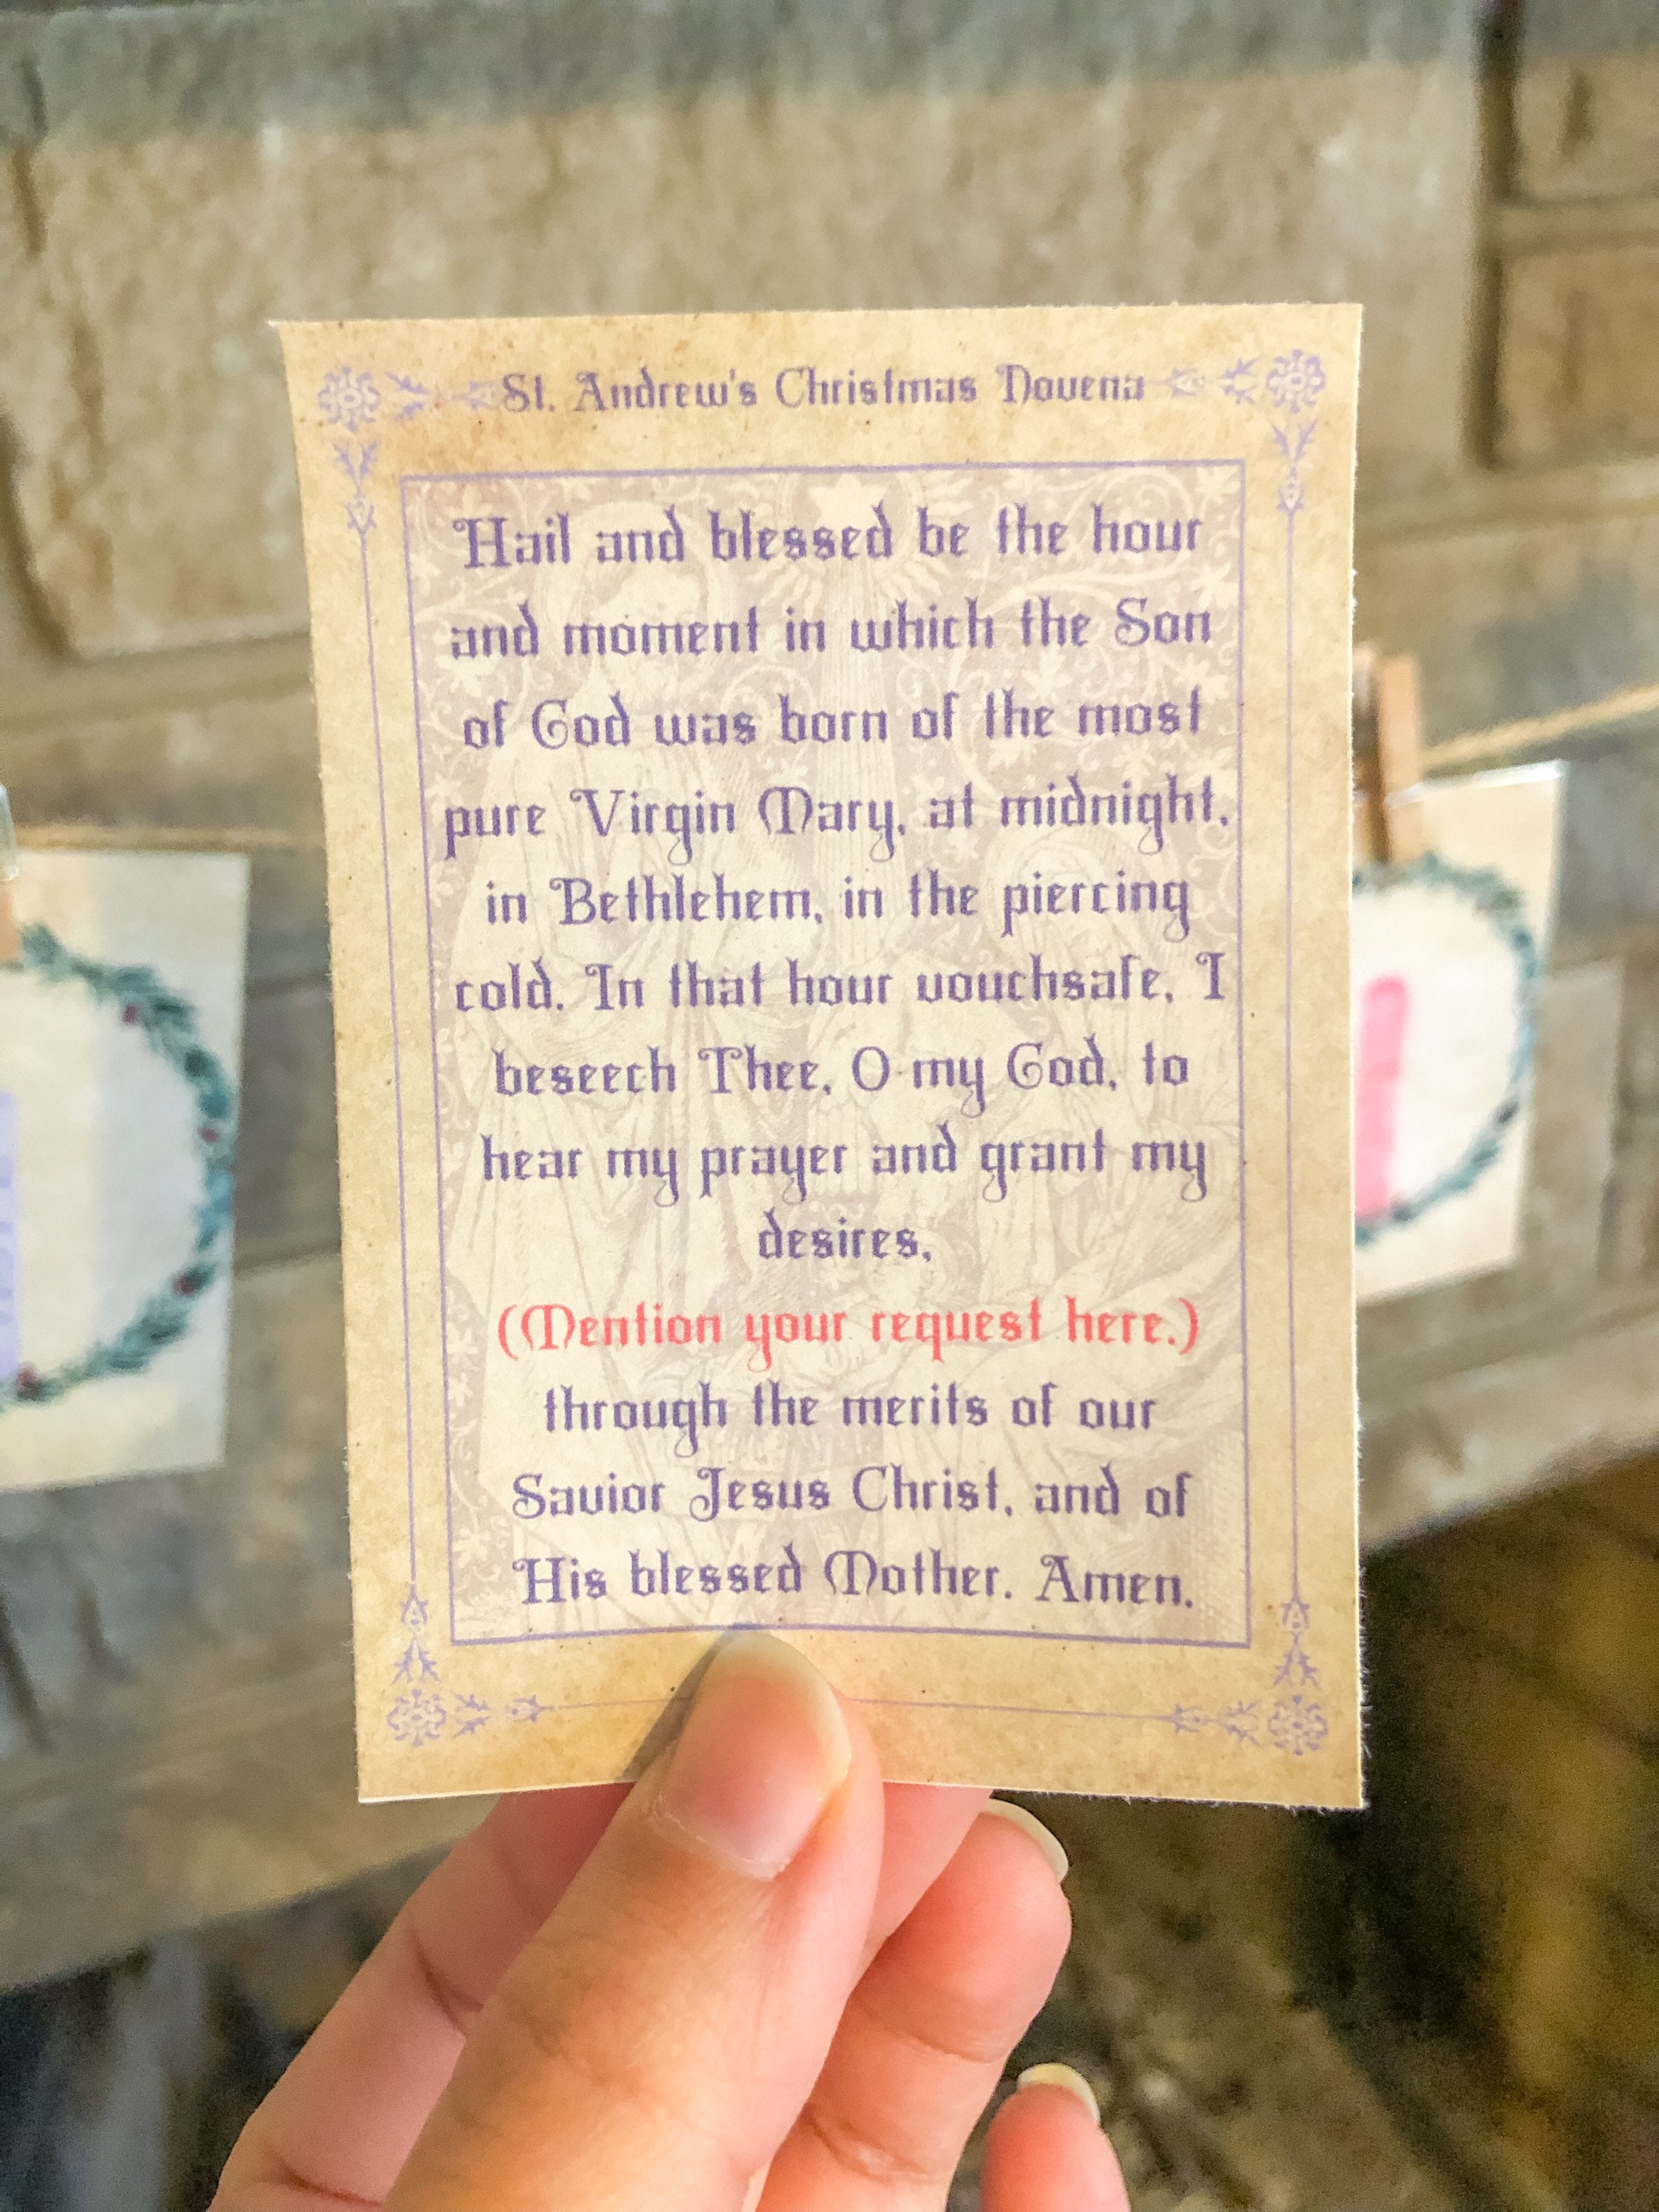 St. Andrew's Christmas Novena
Hail and blessed be the hour
and moment in which the Son
of God was born of the most
pure Virgin Mary, at midnight,
in Bethlehem, in the piercing
cold. In that hour vouchsafe, I
beseech Thee, O my God, to
hear my prayer and grant my
desires,
(Mention your request here.)
through the merits of our
Savior Jesus Christ, and of
His blessed Mother. Amen.